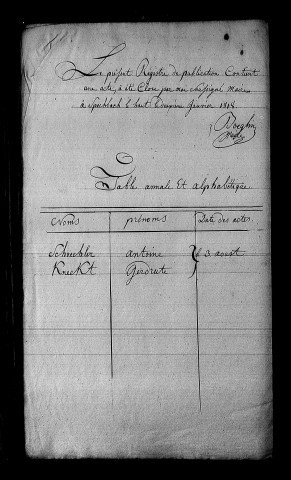 Le présent Registre de publication Contient
un acte, à été Clou par nous soussigné Maire
à Spechbach le haut le
janvier 1818.
Table annale Et alphabétique
Noms prénoms Date des actes
Schnebler antoine le 3 aout
Kneckt Gerdrute